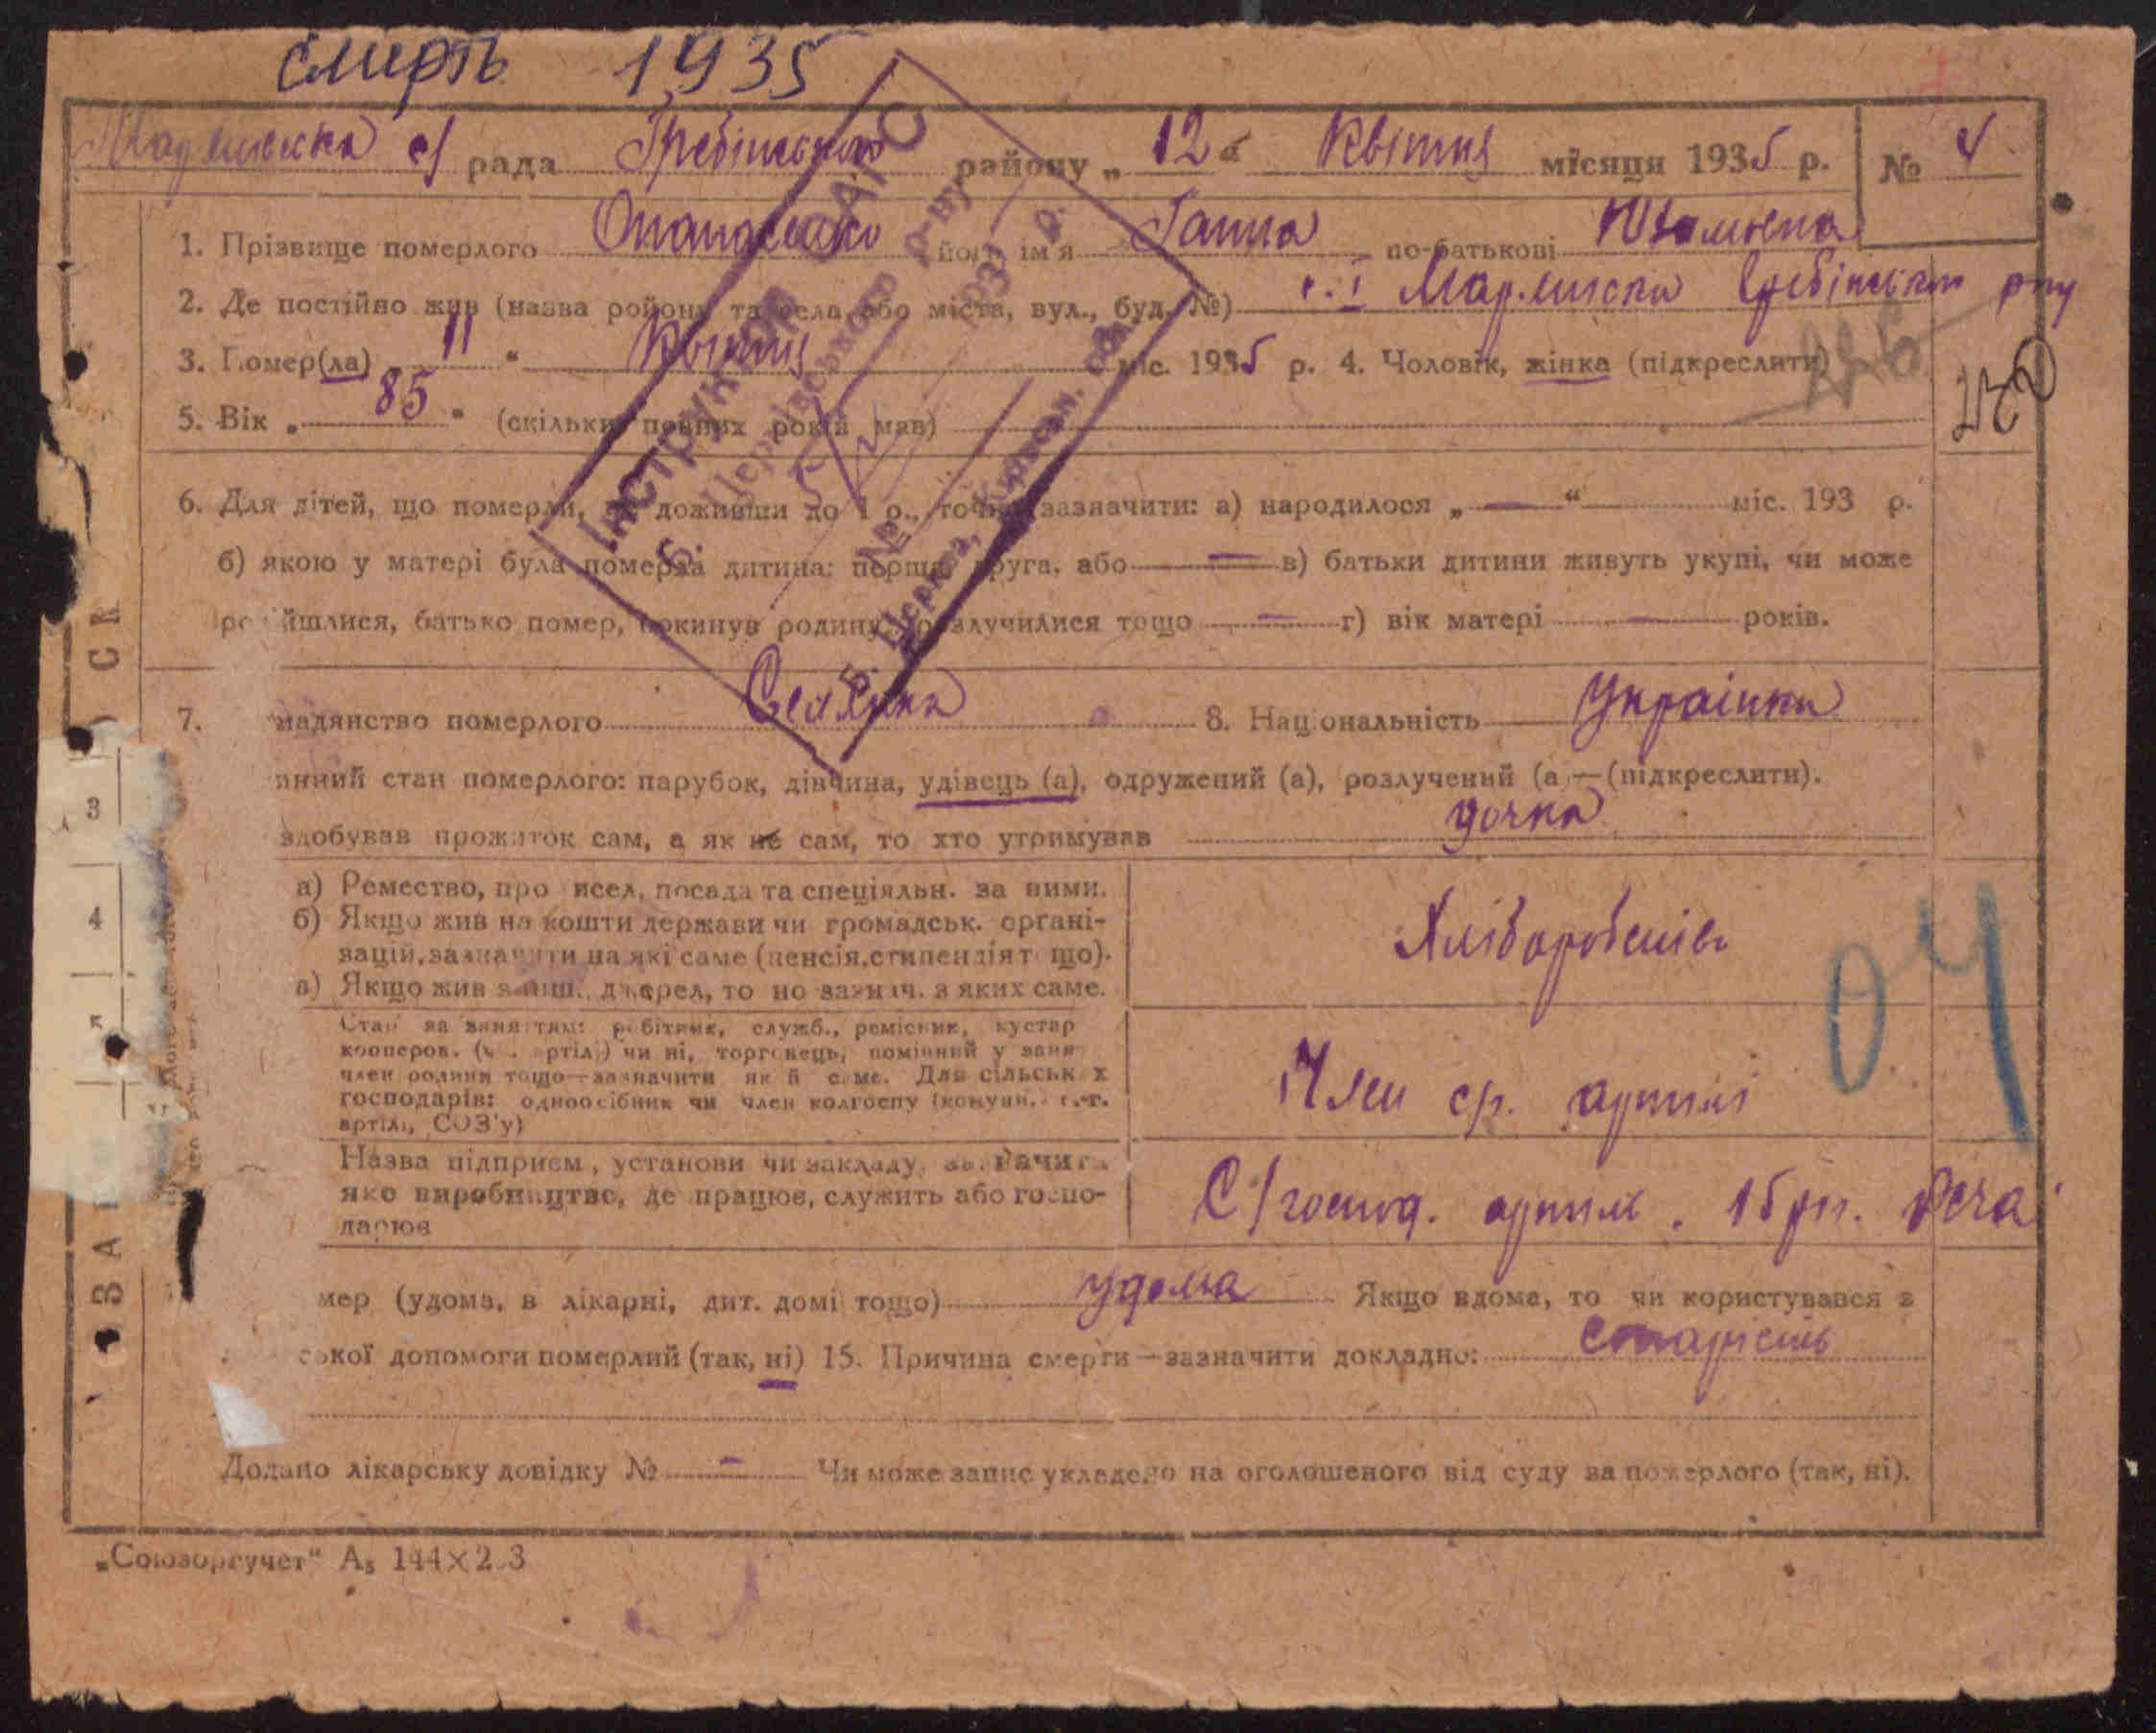 смерть 1935
с/ рада Гребінського району „12“ Квітня місяця 1935 р. № 4
1. Прізвище померлого Опанасенко його ім'я Ганна по-батькові
2. Де постійно жив (назва району та села або міста, вул., буд. №) Гребінського р-ну
3. Помер(ла) „11“ Квітня міс. 1935 р. 4. Чоловік, жінка (підкреслити)
5. Вік „85“ (скільки повних років мав)
6. Для дітей, що померли, не доживши до 1 р., точно зазначити: а) народилося „—“ міс. 193 р.
б) якою у матері була померла дитина: перша, друга, або — в) батьки дитини живуть укупі, чи може
розійшлися, батько помер, покинув родину, розлучилися тощо — г) вік матері — років.
7. мадянство померлого Селянка 8. Національність Українка
инний стан померлого: парубок, дівчина, удівець (а), одружений (а), розлучений (а)—(підкреслити).
здобував прожиток сам, а як не сам, то хто утримував дочка
а) Ремество, про исел, посада та спеціяльн. за ними.
б) Якщо жив на кошти держави чи громадськ. органі-
зацій, зазначити на які саме (пенсія, стипендіят що).
в) Якщо жив з инш. джерел, то но зазнач. з яких саме.
Хліборобство
Стан за заняттям: робітник, служб., ремісник, кустар
кооперов. (ч. артілі) чи ні, торговець, помічний у занят
член родини тощо—зазначити як й саме. Для сільськ х
господарів: одноосібник чи член колгоспу (комуни, с.-г.
артілі, СОЗ'у)
Член ср. артілі
04
Назва підприєм., установи чи закладу, зазначити
яко виробництво, де працює, служить або госпо-
дарює
С/господ. артіль. 1 бри.
мер (удома, в лікарні, дит. домі тощо) удома Якщо вдома, то чи користувався з
ської допомоги померлий (так, ні) 15. Причина смерти—зазначити докладно: старість
Додано лікарську довідку № — Чи може запис укладено на оголошеного від суду за померлого (так, ні).
„Союзоргучет“ А₅ 144×2.3
Інструктор ЗАГС
Б. Церківського р-ну
193 р.
№
Б. Церква, Київськ. обл.
3
4